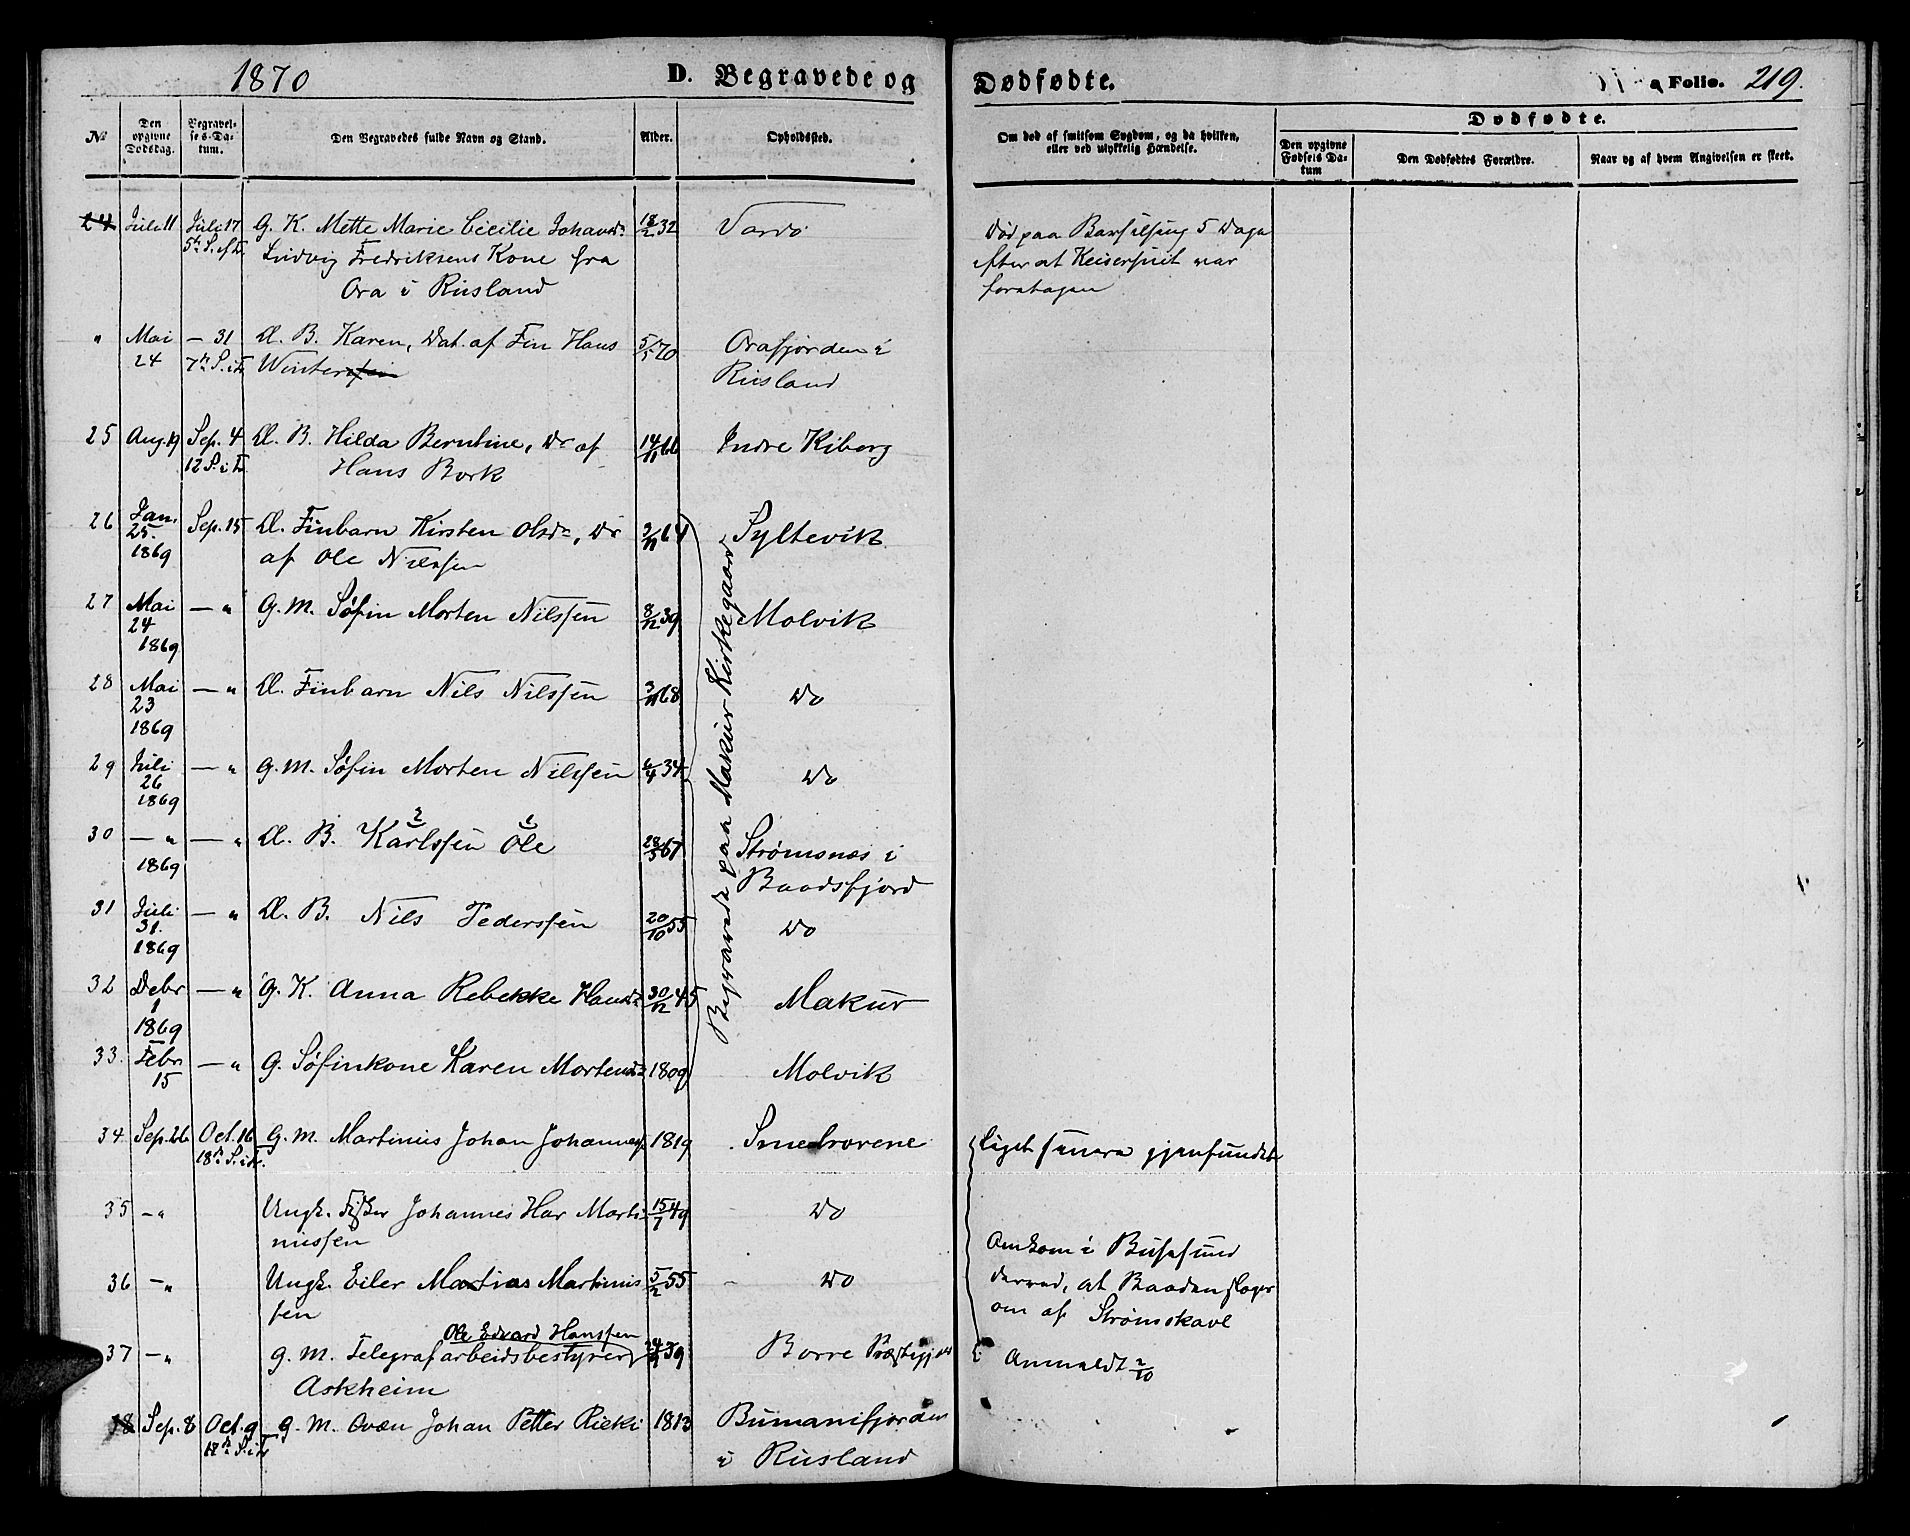 1870
D. Begravede og
Dødfødte.
Folio. 219.
№
Den opgivne Dødsdag.
Begravelses-Datum.
Den Begravedes fulde Navn og Stand.
Alder.
Opholdssted.
Om død af smitsom Sygdom, og da hvilken, eller ved ulykkelig Hændelse.
Dødfødte.
Den opgivne Fødsels Datum
Den Dødfødtes Forældre.
Naar og af hvem Angivelsen er skeet.
24 Juli 11 Juli 17 G. K. Mette Marie Cecilie Johansdr 18/2 32 Vardø
5te S. ef T. Ludvig Fredriksens Kone fra
Ora i Rusland
Død paa Barselseng 5 Dage
efter at Keisersnit var
foretagen
" Mai 24 — 31 D. B. Karen, Dat. af Fin Hans 5/5 70 Orafjorden i
7de S. i T. Wintersen Rusland
25 Aug. 19 Sep. 4 D. B. Hilda Berntine, Dr af 14/11 66 Indre Kiberg
12 S. i T. Hans Bork
26 Jan. 25. 1869 Sep. 15 D. Finbarn Kirsten Olsdr, Dr 3/11 64 Syltevik
af Ole Nilssen
27 Mai 24 1869 — " G. M. Søfin Morten Nilssen 8/12 39 Molvik
28 Mai 23 1869 — " D. Finbarn Nils Nilssen 3/11 68 Do
29 Juli 26 1869 — " G. M. Søfin Morten Nilssen 6/4 34 Do
30 — " 1869 — " D. B. Karlssen Ole 28/5 67 Strømsnes i
Baadsfjord
31 Juli 31. 1869 — " D. B. Nils Pederssen 20/10 55 Do
32 Debr 1 1869 — " G. K. Anna Rebekke Hansdr 30/12 45 Makur
33. Febr 15 — " G. Søfinkone Karen Mortensdr 1809 Molvik
Begravede paa Makur Kirkegaard
34 Sep. 26 Oct. 16 G. M. Martinus Johan Johannes 1819 Smelrorene
18de S. i T.
Liget senere gjenfundet
35 — " Ungk. Fisker Johannes Har Marti- 15/7 49 Do
nussen
36 — " Ungk. Eiler Mathias Martinus 5/2 55 Do
sen
Omkom i Bussesund
derved, at Baaden sloges
om af Strømskavl
Ole Edvard Hanssen
37 — " G. M. Telegrafarbeidsbestyrer 39 Borre Præstegjeld
Askheim
Anmeldt 2/10
38 Sep. 8 Oct. 9 G. M. Qvæn Johan Petter Rieki 1813 Bumanifjorden
i Rusland